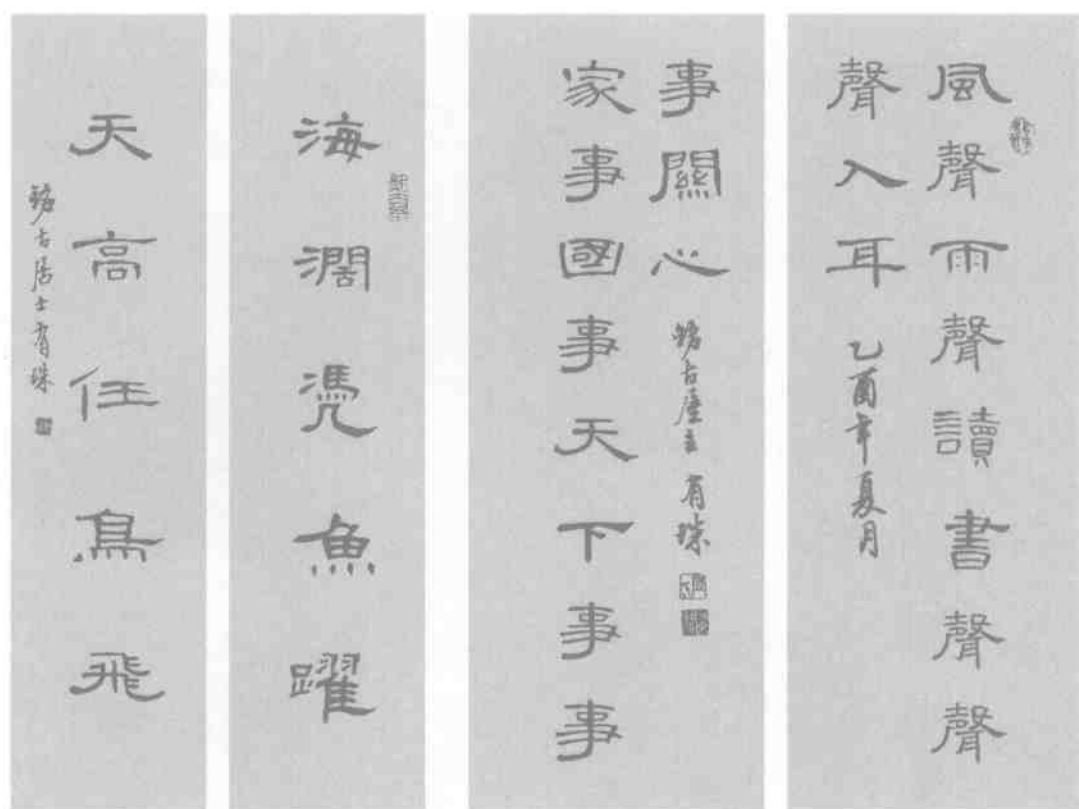 風聲雨聲讀書聲聲
聲入耳
乙酉年夏月
家事國事天下事事
事關心
古廬主有珠
海濶凴魚躍
天高任鳥飛
古居士有珠